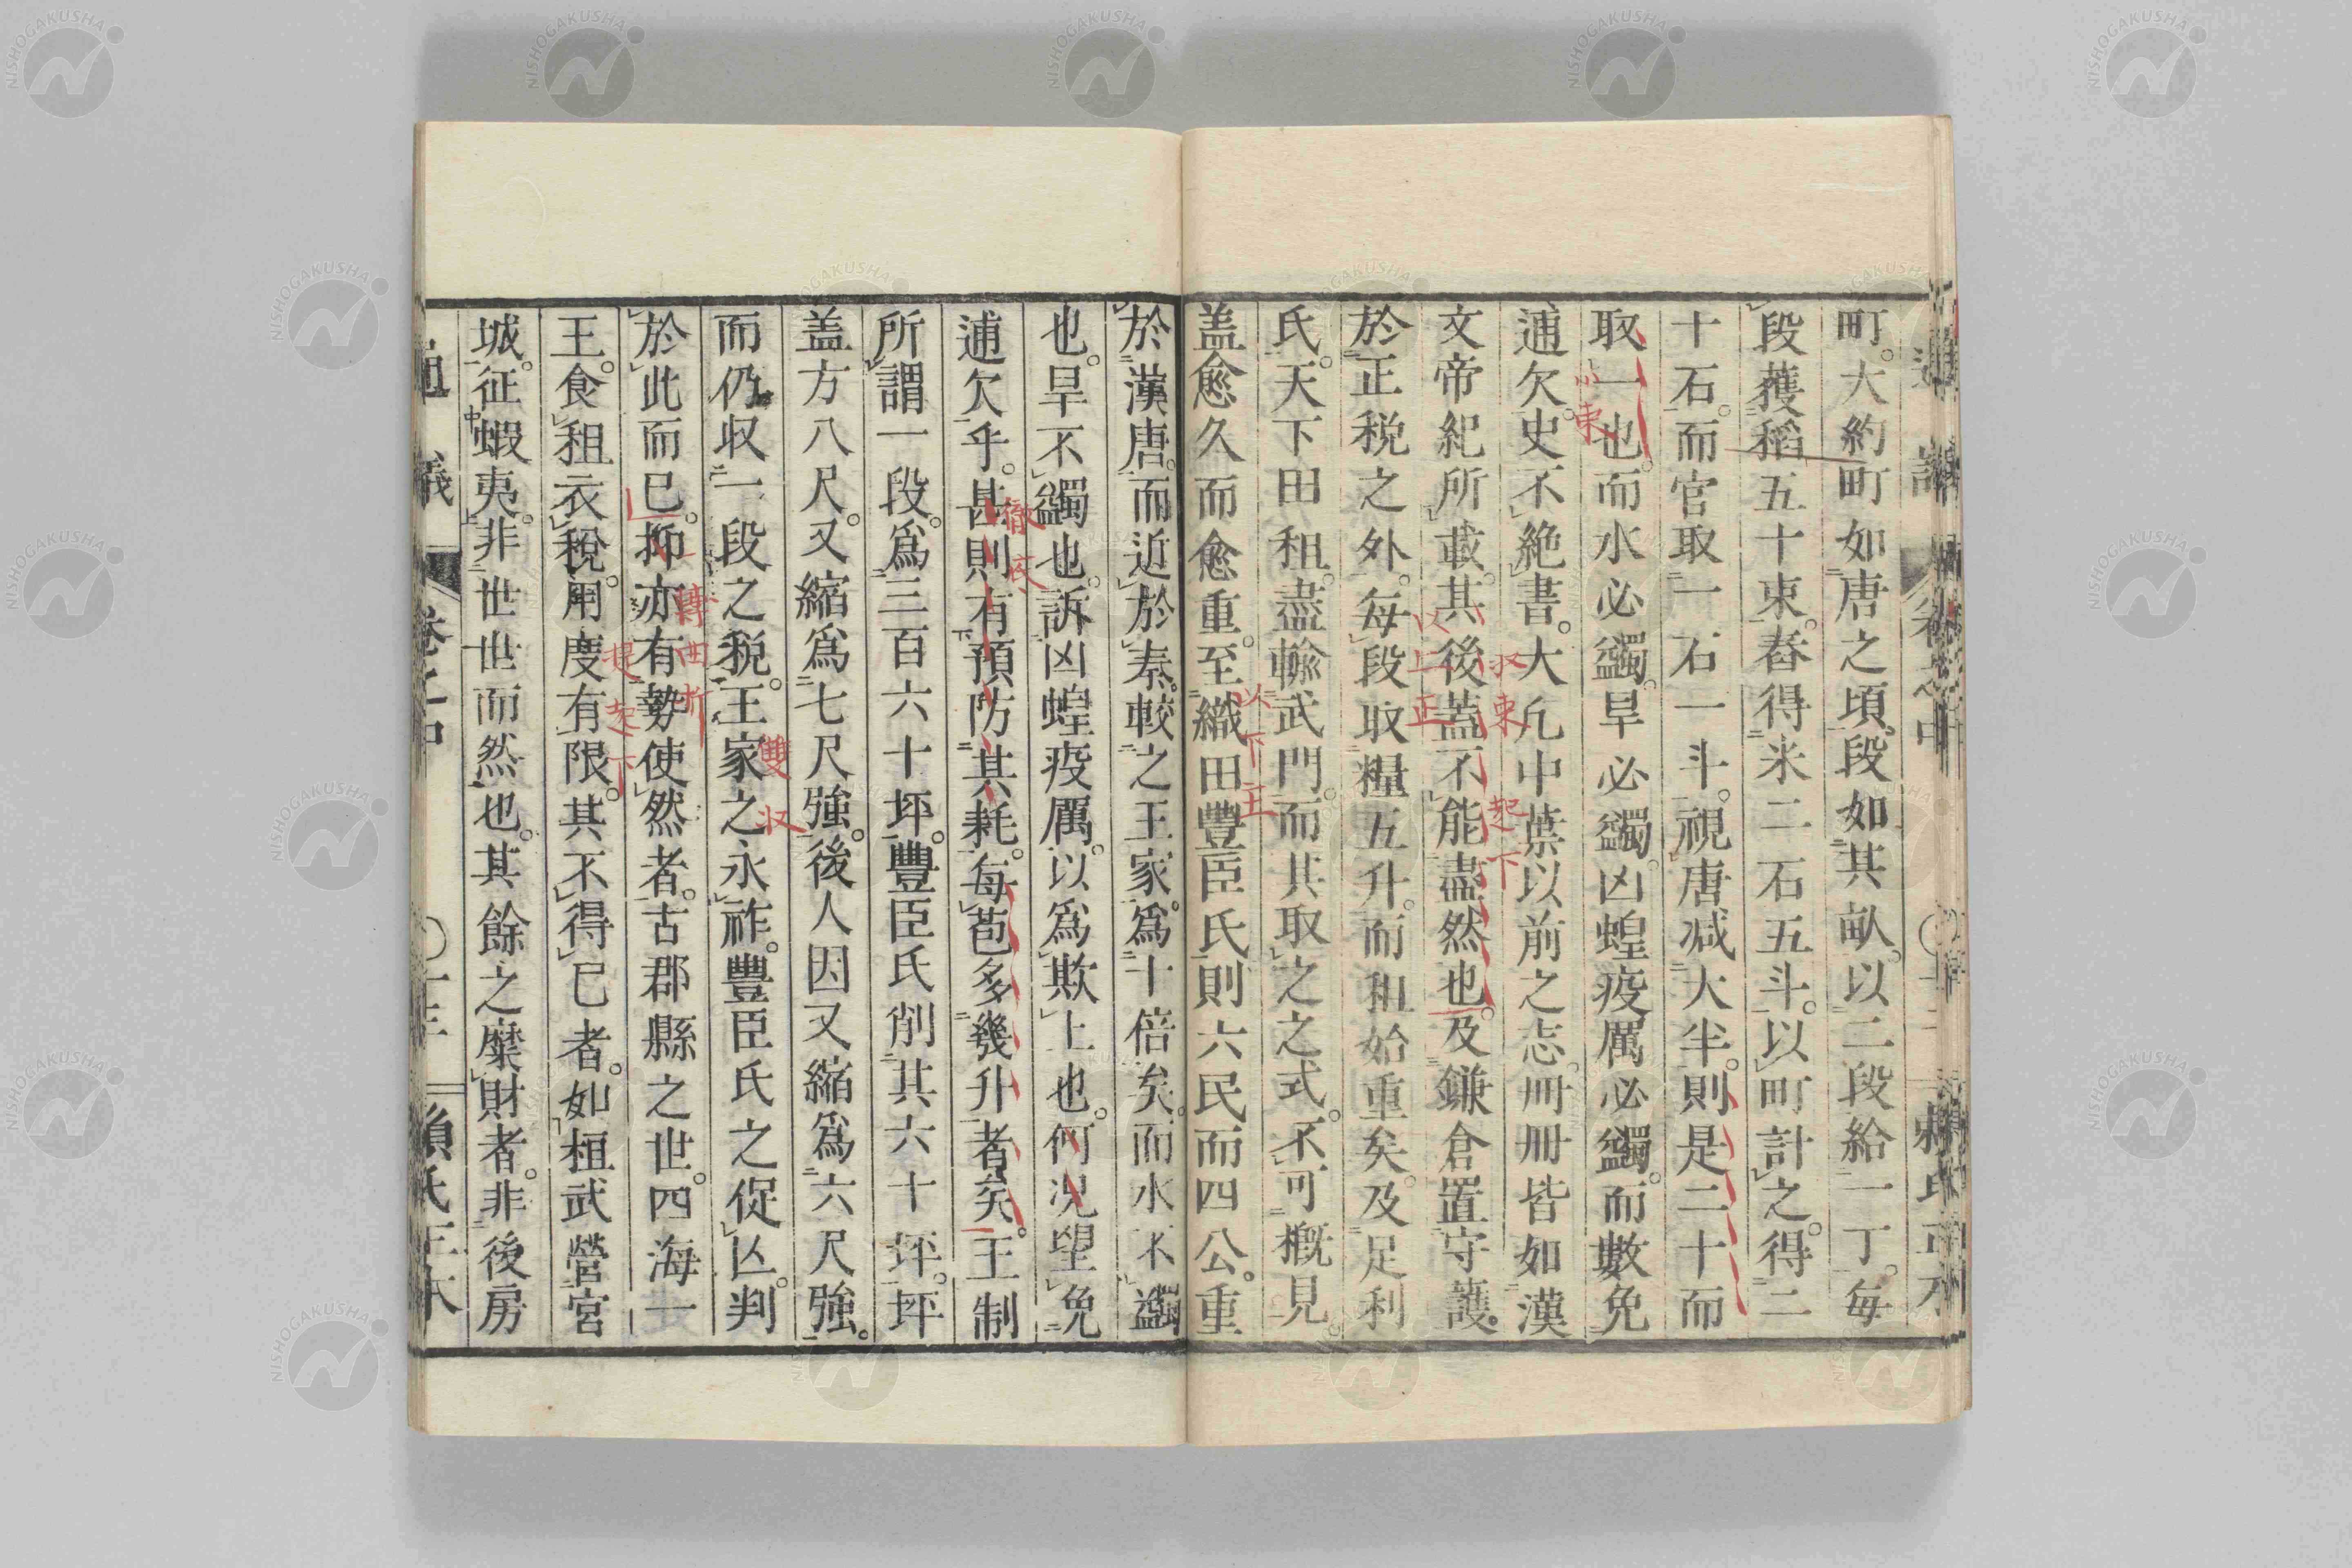 町。大約町如唐之頃。段如其畝。以二段給一丁。毎
段穫稻五十束。舂得米二石五斗。以町計之。得二
十石。而官取一石一斗。視唐减大半。則是二十而
取一也。而水必蠲。旱必蠲。凶蝗疫厲必蠲。而數免
逋欠。史不絶書。大凡中葉以前之志。冊冊皆如漢
文帝紀所載。其後蓋不能盡然也。及鎌倉置守護。
於正税之外。毎段取糧五升。而租始重矣。及足利
氏。天下田租。盡輸武門。而其取之之式。不可概見。
盖愈久而愈重。至織田豐臣氏。則六民而四公。重
於漢唐。而近於秦。較之王家。爲十倍矣。而水不蠲
也。旱不蠲也。訴凶蝗疫厲。以爲欺上也。何況望免
逋欠乎。甚則有預防其耗。毎苞多幾升者矣。王制
所謂一段。爲三百六十坪。豐臣氏削其六十坪。坪
盖方八尺。又縮爲七尺強。後人因又縮爲六尺強。
而仍収一段之税。王家之永祚。豐臣氏之促亾。判
於此而已。抑亦有勢使然者。古郡縣之世。四海一
王。食租衣税。用度有限。其不得已者。如桓武營宮
城。征蝦夷。非世世而然也。其餘之糜財者。非後房
通議
卷之中
賴氏正本
以束
収束
起下
以上正
以下正
徹底
雙収
一轉曲折
提起下